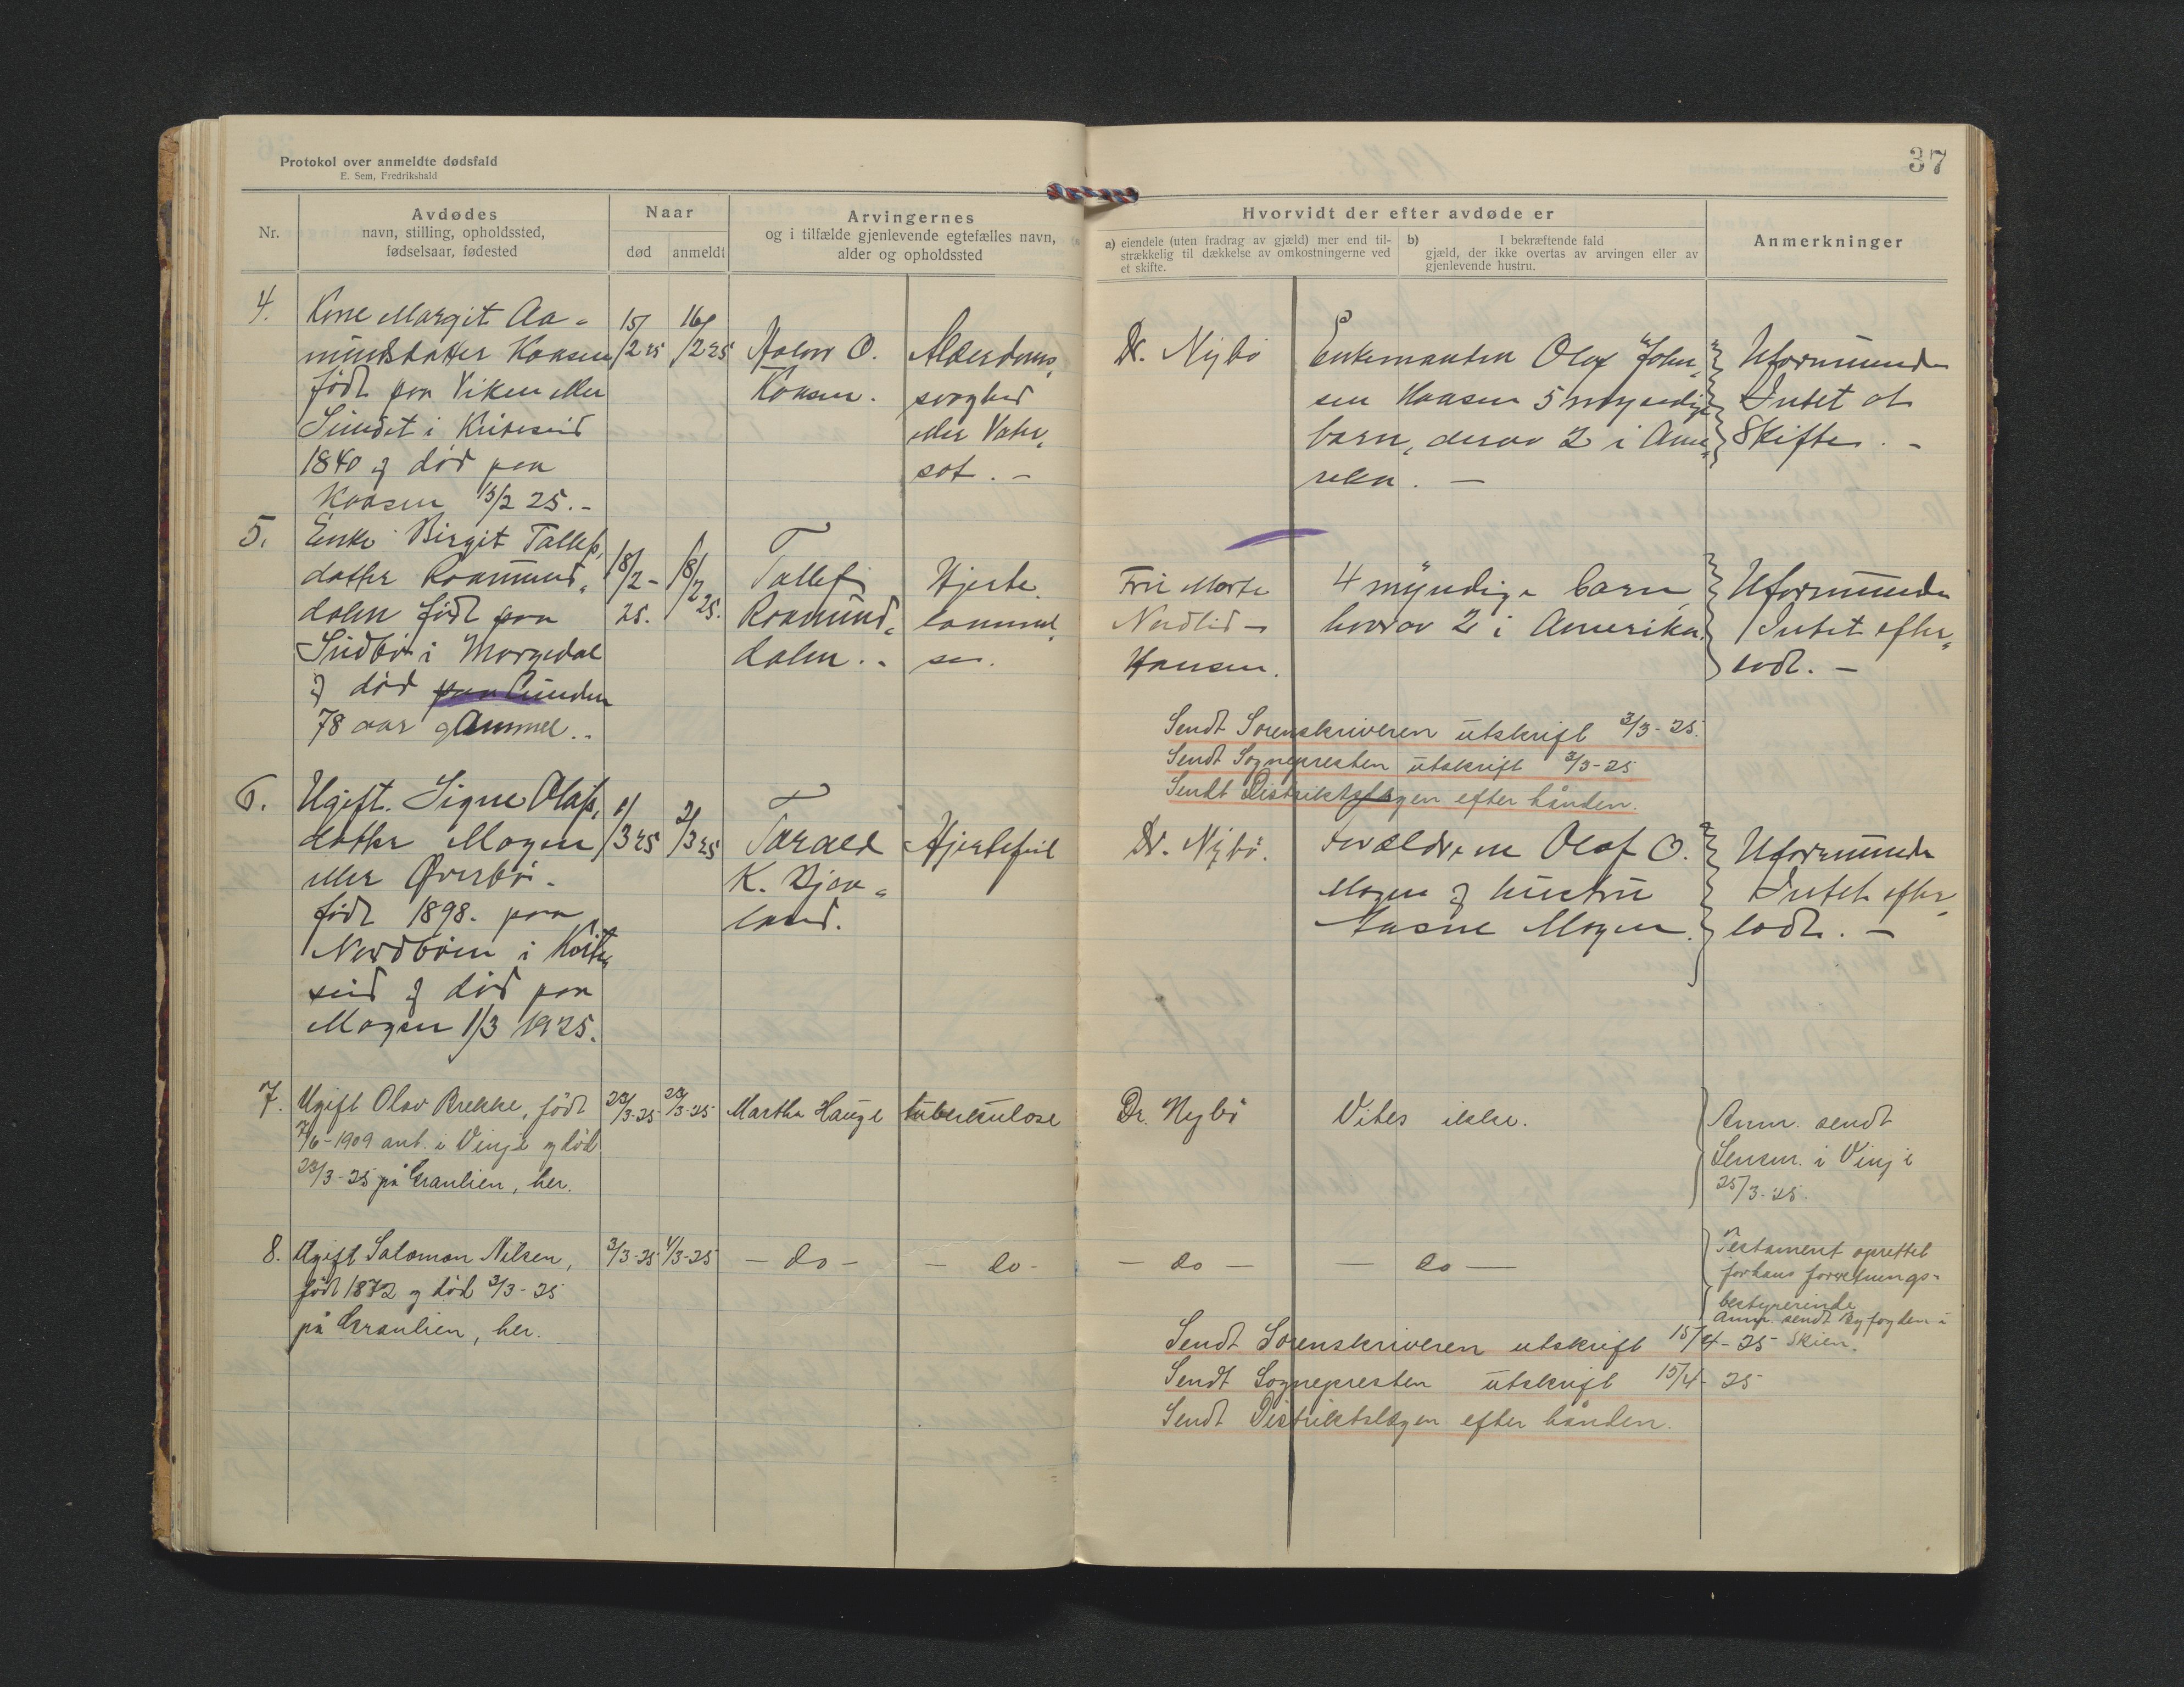 Protokol over anmeldte dødsfald
E. Sem, Fredrikshald
37
Nr.
Avdødes
navn, stilling, opholdssted,
fødselsaar, fødested
Naar
død
anmeldt
Arvingernes
og i tilfælde gjenlevende egtefælles navn,
alder og opholdssted
Hvorvidt der efter avdøde er
a) eiendele (uten fradrag av gjæld) mer end til-
strækkelig til dækkelse av omkostningerne ved
et skifte.
b) I bekræftende fald
gjæld, der ikke overtas av arvingen eller av
gjenlevende hustru.
Anmerkninger
4.
Kone Margit Aa-
mundsdatter Kaasen
født paa Viken eller
Sundet i Kviteseid
1840 og død paa
Kaasen 15/2 25.-
15/2 25
16/2 25
O.
Kaasen.
Alderdoms-
svaghed
eller Vater-
sot.-
Dr. Nybö
Enkemanden Olaf John-
sen Kaasen 5 myndige
barn, derav 2 i Ame-
rika. -
Uformuende
Intet at
Skifte. -
5.
Enke Birgit Tallefs-
datter Roamund-
dalen født paa
Sudbö i Morgedal
og død paa Lunden
78 aar gammel..
18/2-
25.
18/2 25.
Tallef
Roamund-
dalen..
Hjerte-
lammel-
se.
Fru Marte
Nordlid-
Hansen.
4 myndige barn,
hvorav 2 i Amerika.
Uformuende
Intet efter-
lodt. -
Sendt Sorenskriveren utskrift 3/3-25.
Sendt Sognepresten utskrift 3/3-25
Sendt Distriktslægen efter hånden.
6.
Ugift. Signe Olafs-
datter Mogen
eller Øverbö.
født 1898. paa
Nordbøen i Kvite-
seid og død paa
Mogen 1/3 1925.
1/3 25
2/3 25
Tarald
K. Djuv-
land.
Hjertefeil
Dr. Nybö.
Forældrene Olaf O.
Mogen og hustru
Aasne Mogen.
Uformuende
Intet efter-
lodt. -
7.
Ugift Olav Brekke, født
7/6-1909 ant. i Vinje og död
23/3-25 på Granlien, her.
23/3-25
23/3-25
Martha Hauge
tuberkulose
Dr. Nybö
Vites ikke.
Anm. sendt
Lensm. i Vinje
25/3-25.
8.
Ugift Salomon Nilsen,
født 1872 og död 3/3-25
på Granlien, her.
3/3-25
4/3-25
- do -
- do -
- do -
- do -
Testament oprettet
for hans forretnings-
bestyrerinde
Anm. sendt Byfogden i
Skien.
Sendt Sorenskriveren utskrift 15/4-25
Sendt Sognepresten utskrift 15/4-25
Sendt Distriktslægen efter hånden.